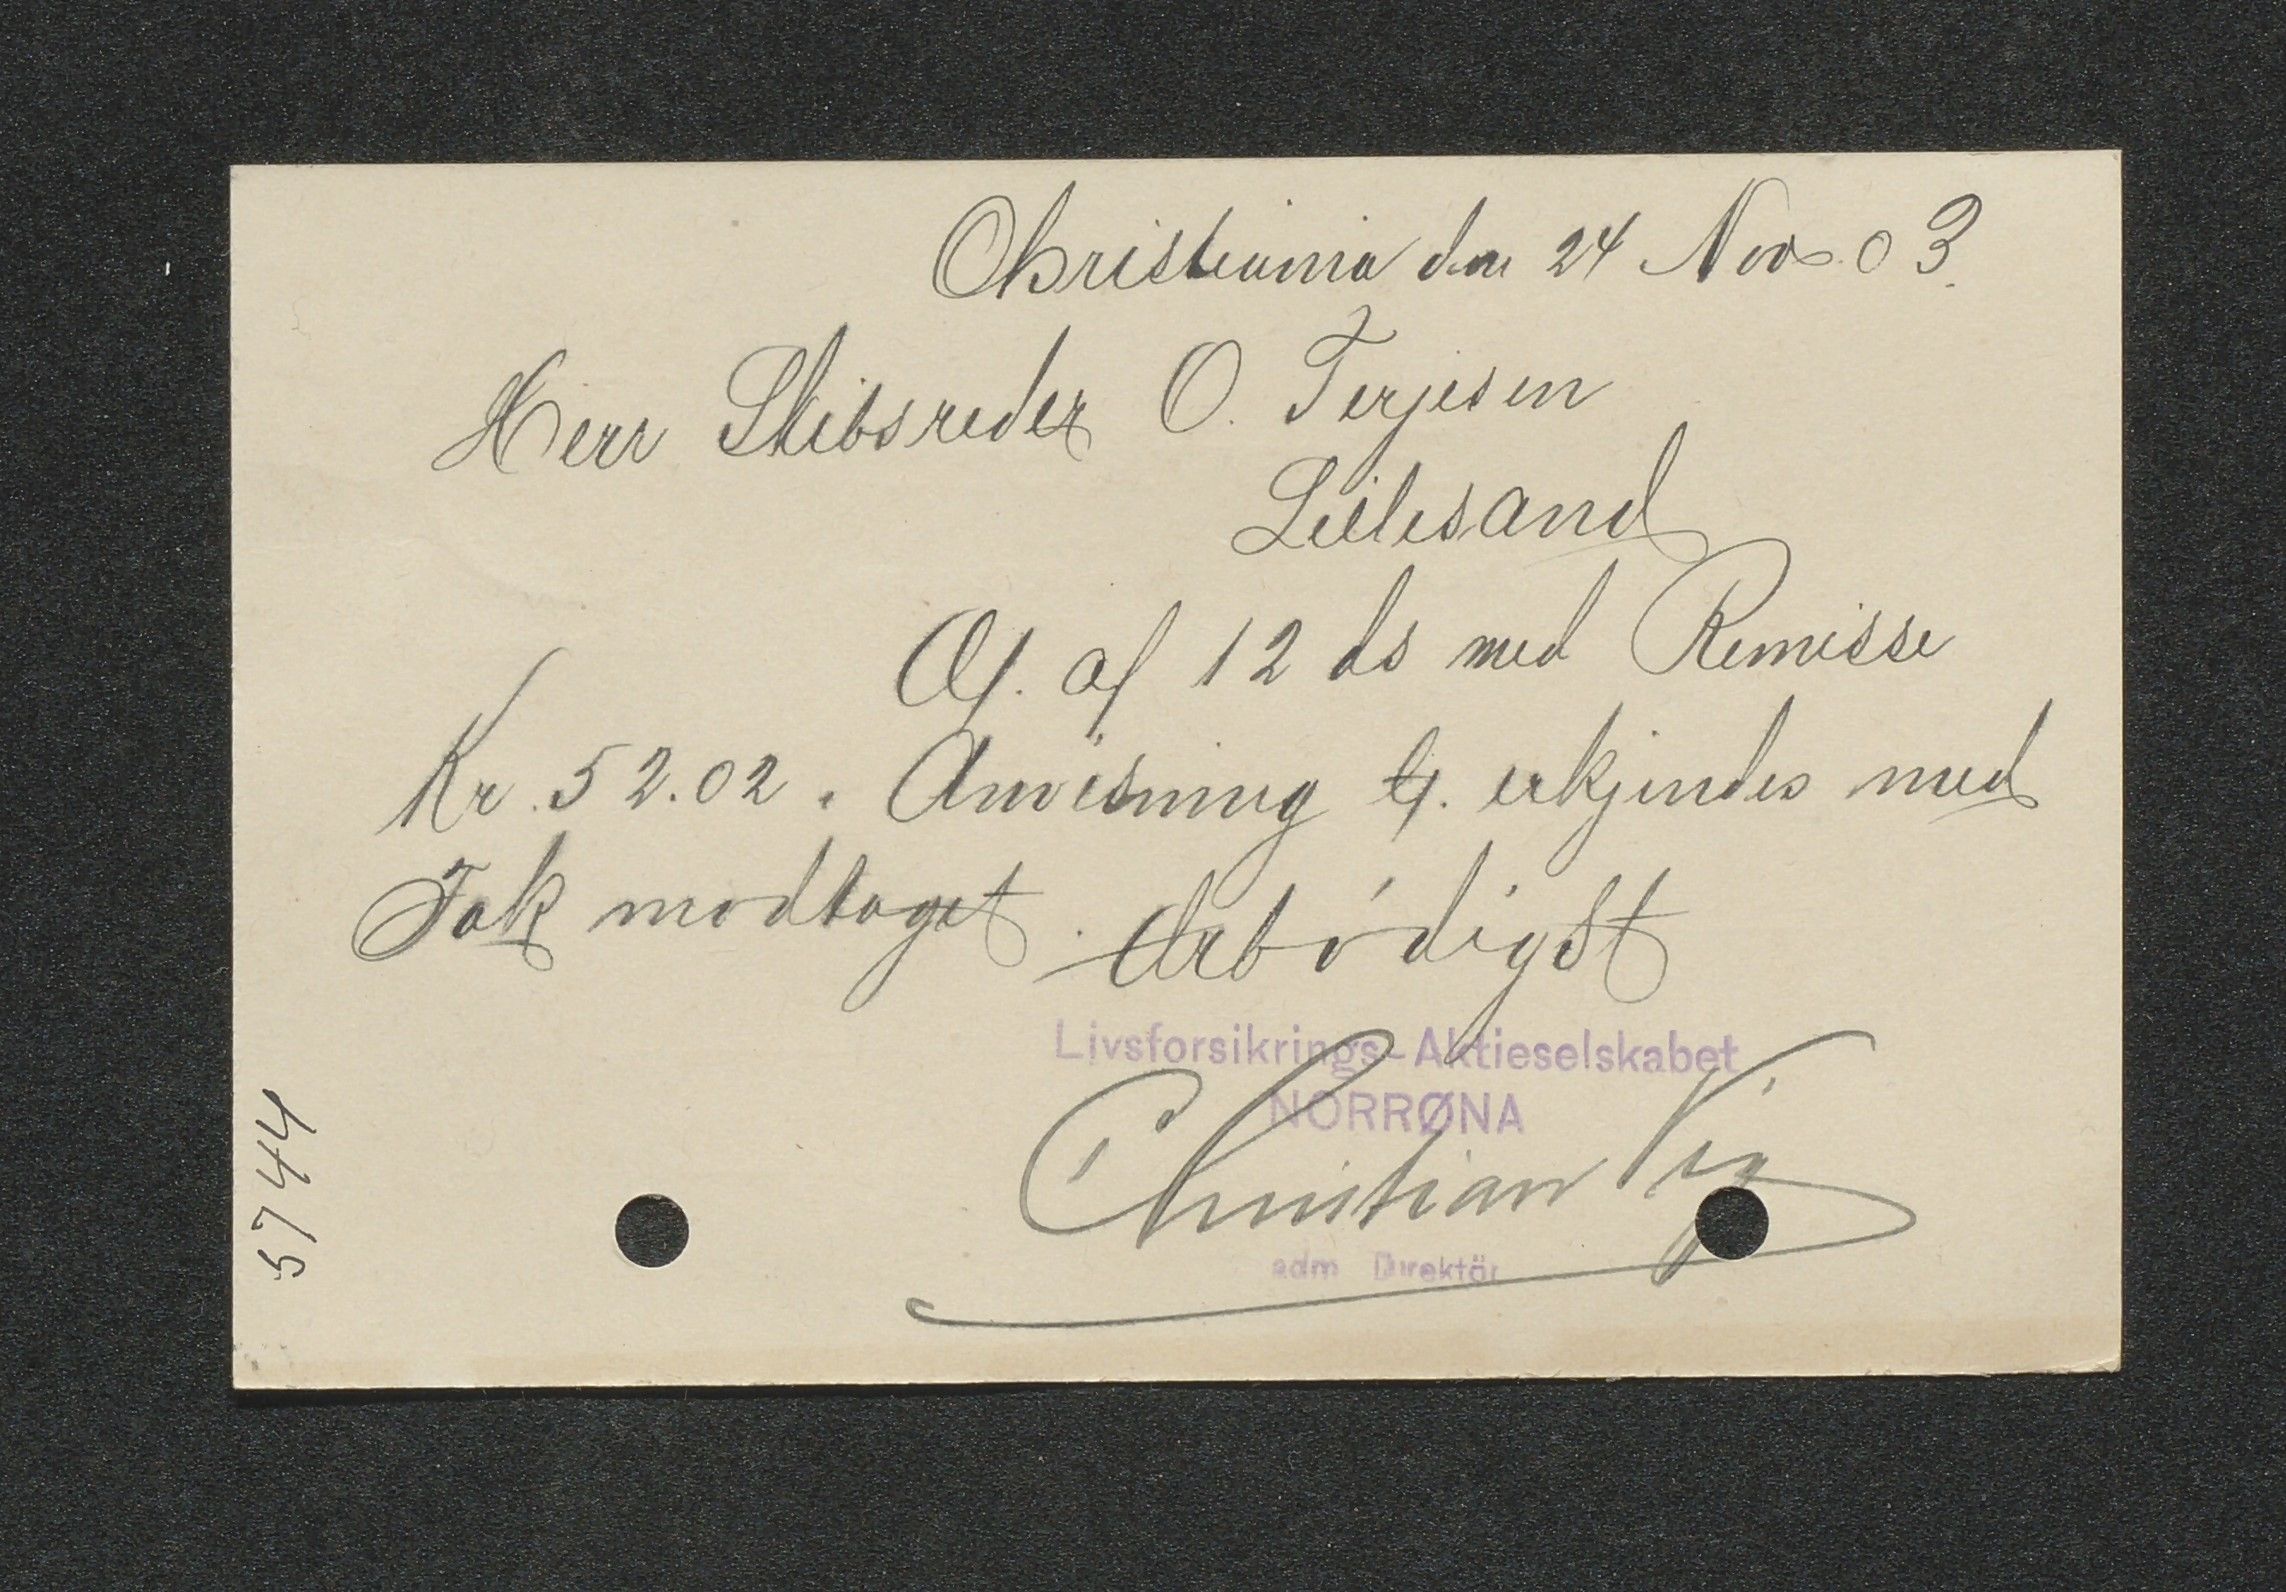 Christiania den 24 Nov. 03.
Herr Skibsreder O. Terjesen
Lillesand
af 12 ds med Remisse
Kr. 52.02. Anvisning erkjendes med
Tak modtaget. Ærbödigst
Livsforsikrings-Aktieselskabet
NORRØNA
Christian
adm. Direktör
5744